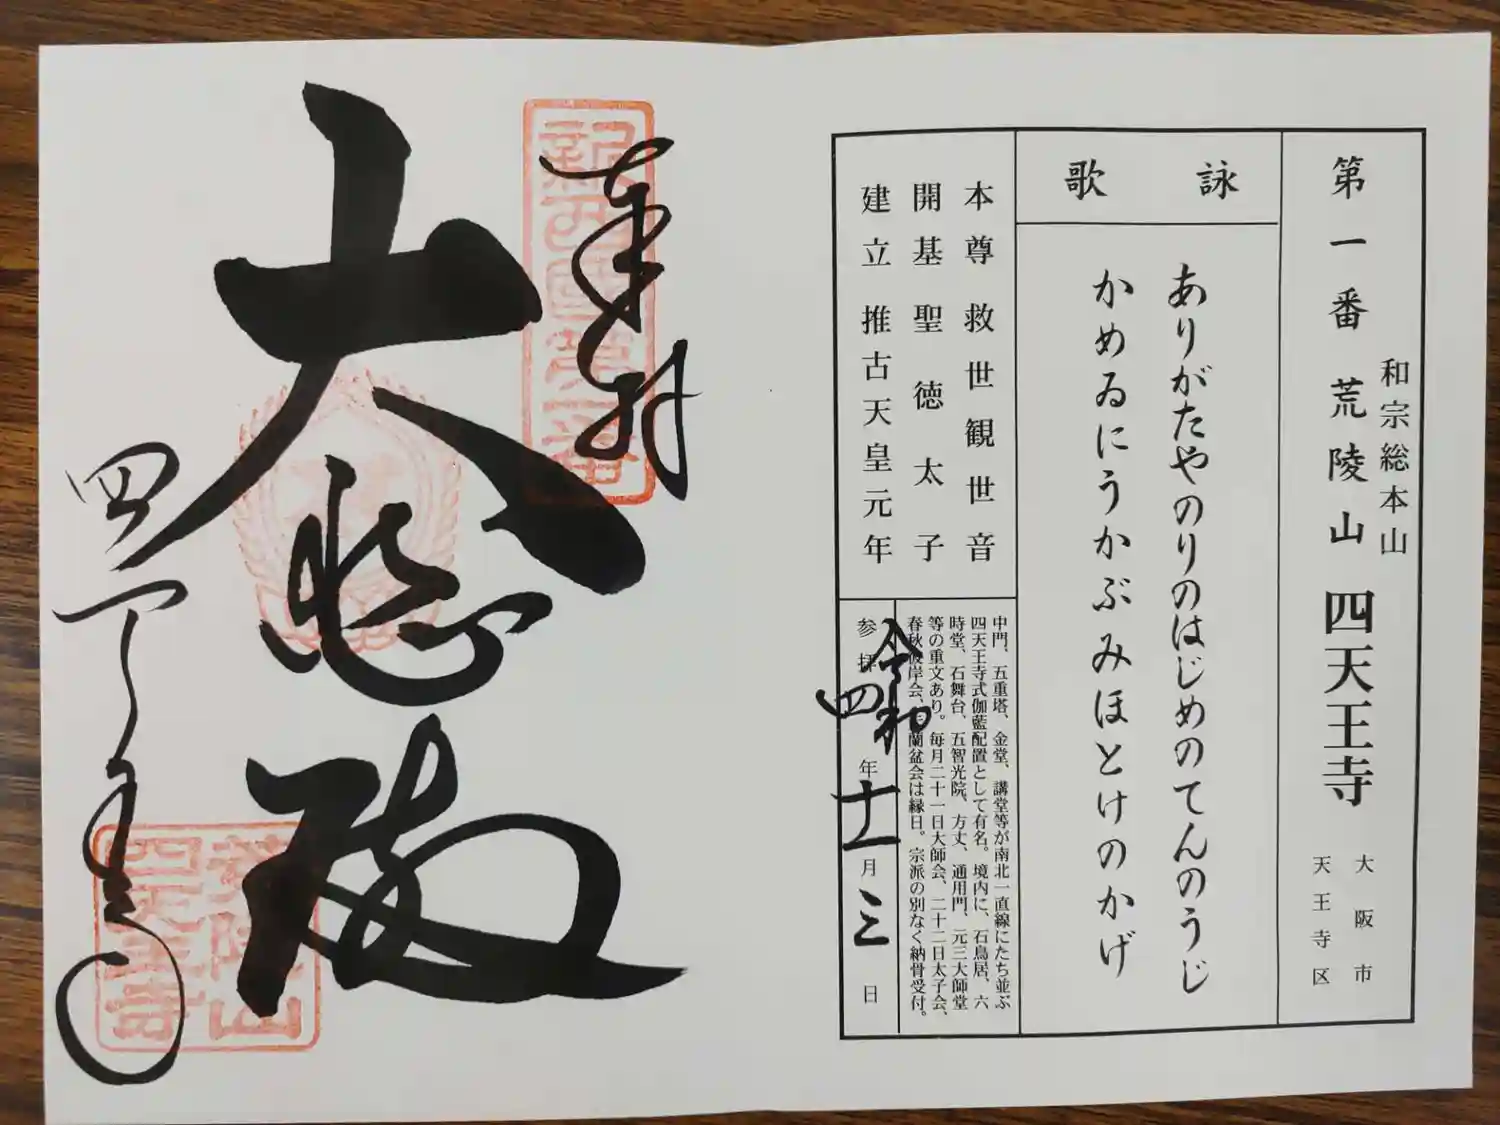 第一番 荒陵山 四天王寺
和宗総本山
大阪市
天王寺区
詠歌
ありがたやのりのはじめのてんのうじ
かめゐにうかぶみほとけのかげ
本尊 救世観世音
開基 聖徳太子
建立 推古天皇元年
中門、五重塔、金堂、講堂等が南北一直線にたち並ぶ
四天王寺式伽藍配置として有名。境内に、石鳥居、六
時堂、石舞台、五智光院、方丈、通用門、元三大師堂
等の重文あり。毎月二十一日大師会、二十二日太子会、
春秋彼岸会、盂蘭盆会は縁日。宗派の別なく納骨受付。
参拝 令和四年十一月三日
新西國第一番
奉拝
大悲殿
四天王寺
荒陵山
四天王寺